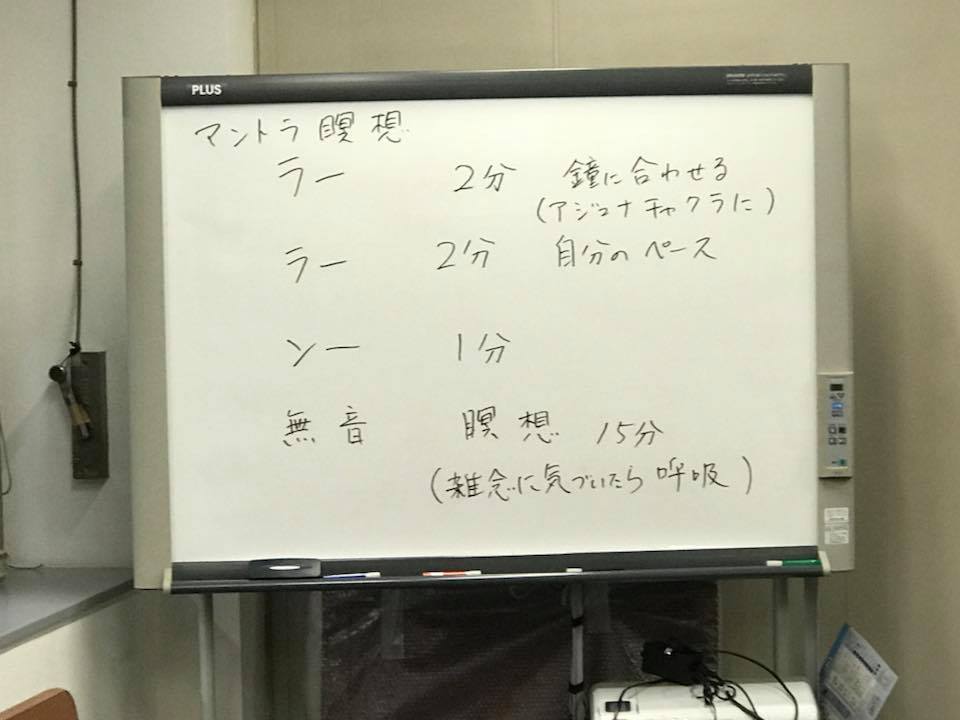 PLUS
マントラ 瞑想
ラー 2分 鐘に合わせる
(アジコナチャクラに)
ラー 2分 自分のペース
ンー 1分
無音 瞑想 15分
(雑念に気づいたら呼吸)